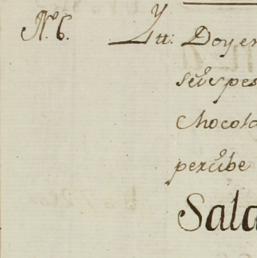 N.º 6. Ytt: Doyen
seis pes
Chocola
percibe
Sala